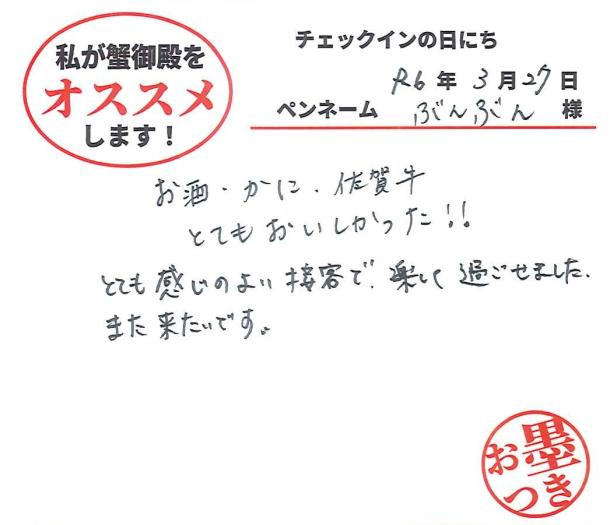 私が蟹御殿を
オススメ
します！
チェックインの日にち
R6年3月27日
ペンネーム ぶんぶん 様
お酒・かに、佐賀牛
とてもおいしかった!!
とても感じのよい接客で、楽しく過ごせました、
また来たいです。
お墨つき